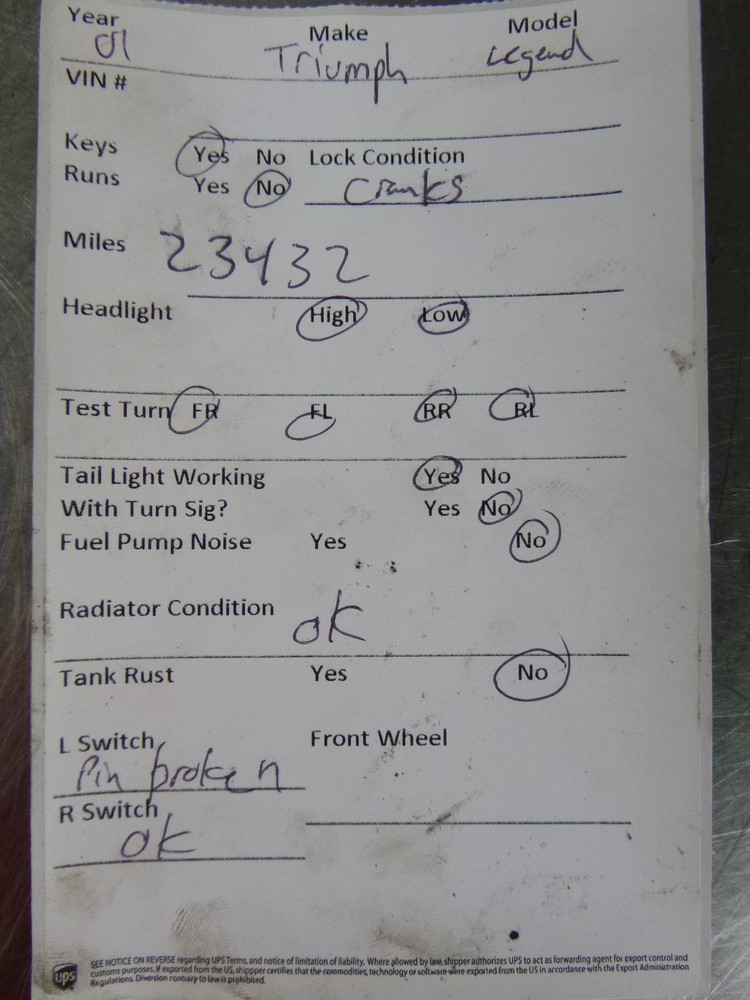 Year Make Model
01 Triumph Legend
VIN #
Keys Yes No Lock Condition
Runs Yes No Cranks
Miles 23432
Headlight High Low
Test Turn FR FL RR RL
Tail Light Working Yes No
With Turn Sig? Yes No
Fuel Pump Noise Yes No
Radiator Condition OK
Tank Rust Yes No
L Switch Front Wheel
Pin broken
R Switch
OK
ups
SEE NOTICE ON REVERSE regarding UPS Terms, and notice of limitation of liability. Where allowed by law, shipper authorizes UPS to act as forwarding agent for export control and
customs purposes. If exported from the US, shippper certifies that the commodities, technology or software were exported from the US in accordance with the Export Administration
Regulations. Diversion contrary to law is prohibited.